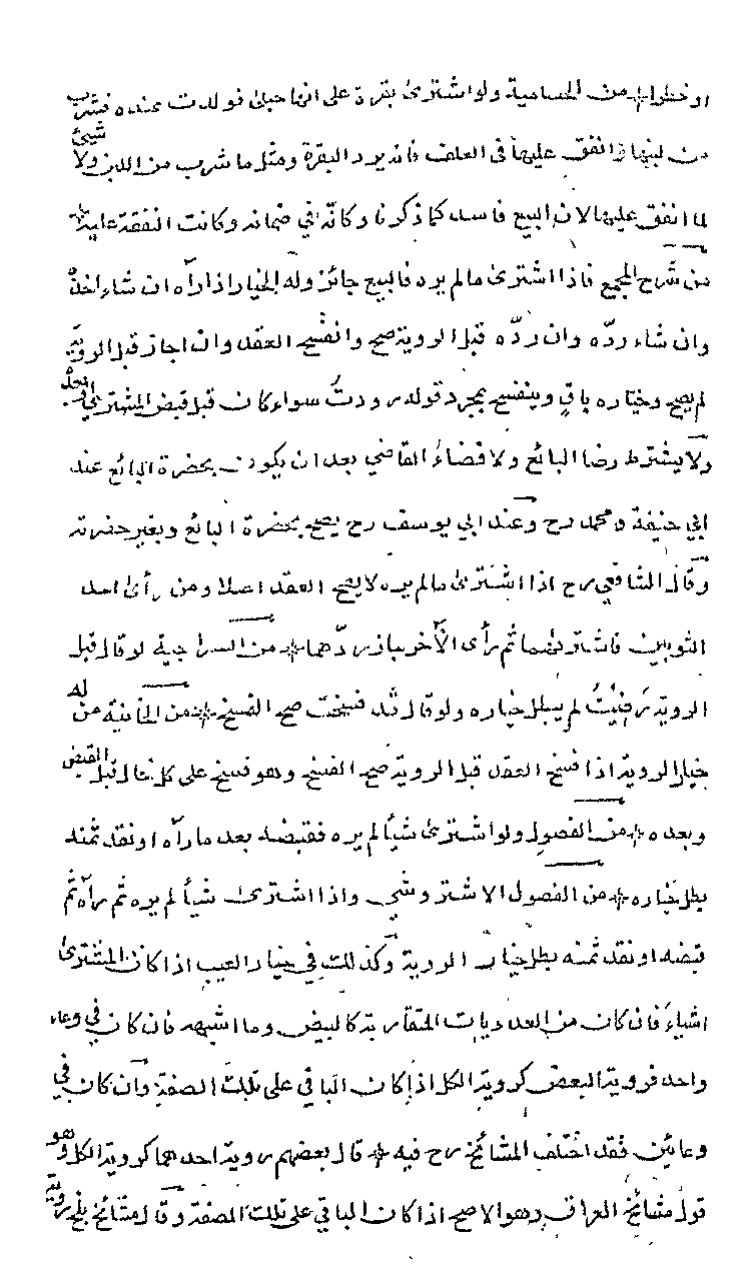 او خطرا * من الحسامية ولو اشترى بقرة على انها حبلى فولدت عنده فشرب
من لبنها وانفق عليها فى العلف فانه يرد البقرة ومثل ما شرب من اللبن ولا شيئ
لما انفق عليها لان البيع فاسد كما ذكرنا وكانه فى ضمانه وكانت النفقة عليه *
من شرح المجمع فاذا اشترى مالم يره فالبيع جائز وله الخيار اذا رآه ان شاء اخذه
وان شاء ردّه وان ردّه قبل الروية صح وانفسخ العقد وان اجاز قبل الروية
لم يصح وخياره باقٍ وينفسخ بمجرد قوله رددتُ سواء كان قبل قبض المشترى او بعده
ولا يشترط رضا البائع ولا قضاء القاضي بعد ان يكون بحضرة البائع عند
ابي حنيفة ومحمد رح وعند ابي يوسف رح يصح بحضرة البائع وبغير حضرته
وقال الشافعي رح اذا اشترى مالم يره لا يصح العقد اصلا ومن رأى احد
الثوبين فاشتريهما ثم رأى الآخر جاز ردّهما * من السراجية لو قال قبل
الروية رضيتُ لم يبطل خياره ولو قال قد فسخت صح الفسخ * من الخانية من له
خيار الروية اذا فسخ العقد قبل الروية صح الفسخ وهو فسخ على كل حال قبل القبض
وبعده * من الفصول ولو اشترى شيأ لم يره فقبضه بعد ما رآه او نقد ثمنه
بطل خياره * من الفصول الاشتروشي واذا اشترى شيأ لم يره ثم رآه ثم
قبضه او نقد ثمنه بطل خيار الروية وكذلك في خيار العيب اذا كان المشترى
اشياءَ فان كان من العدديات المتقاربة كالبيض وما اشبهه فان كان في وعاء
واحد فروية البعض كروية الكل اذا كان الباقي على تلك الصفة وان كان في
وعائين فقد اختلف المشائخ رح فيه * قال بعضهم روية احدهما كروية الكل وهو
قول مشائخ العراق وهو الاصح اذا كان الباقي على تلك الصفة وقال مشائخ بلخ روية